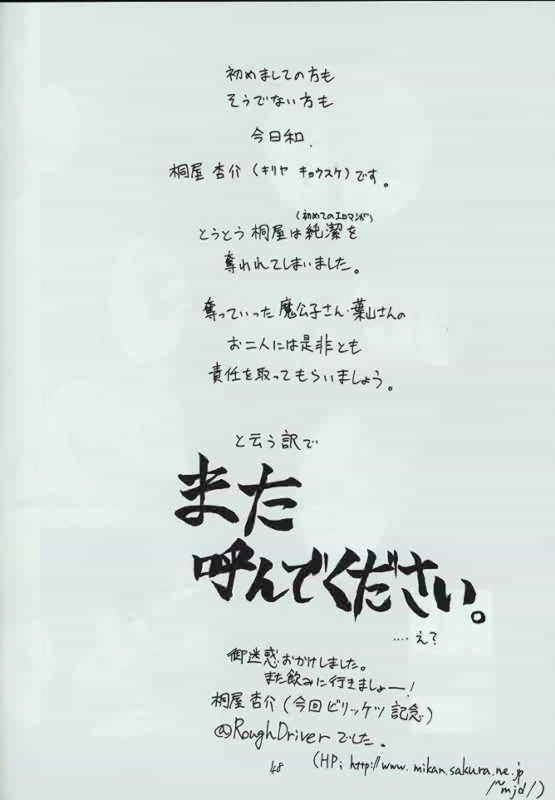 初めましての方も
そうでない方も
今日和.
桐屋 杏介 (キリヤ キョウスケ) です。
(初めてのエロマンガ)
とうとう 桐屋は純潔を
奪われてしまいました。
奪っていった 魔公子さん・葉山さんの
お二人には是非とも
責任を取ってもらいましょう。
と云う訳で
また
呼んでください。
‥‥え?
御迷惑おかけしました。
また飲みに行きましょー!
桐屋 杏介 (今回ビリッケツ記念)
@RoughDriver でした。
48
(HP; http://www.mikan.sakura.ne.jp
/~mjd/)